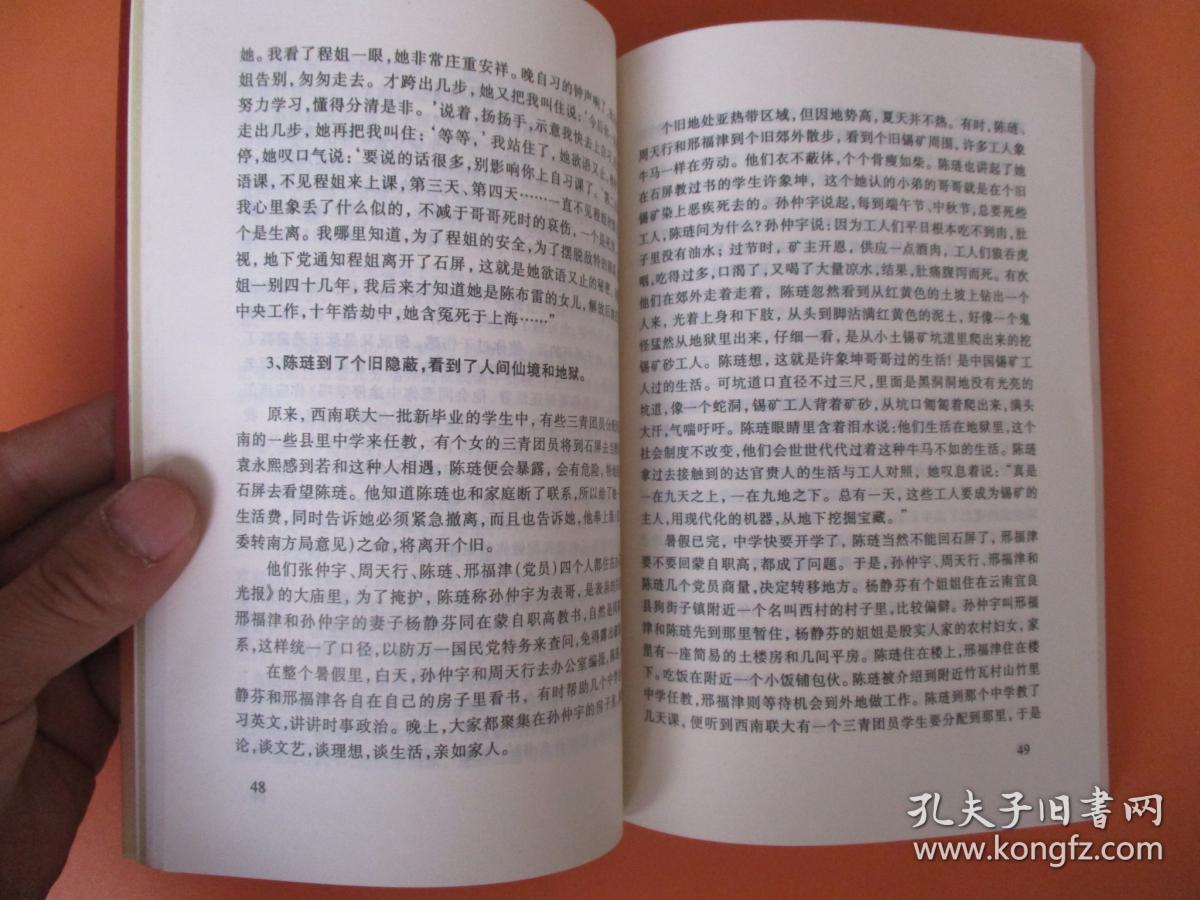 她。我看了程姐一眼,她非常庄重安祥。晚自习的钟声响了,
姐告别,匆匆走去。才跨出几步,她又把我叫住说:‘今后
努力学习,懂得分清是非。’说着,扬扬手,示意我快去上自习。
走出几步,她再把我叫住:‘等等,’我站住了,她欲语又止,
停,她叹口气说:‘要说的话很多,别影响你上自习课了。’第二
语课,不见程姐来上课,第三天、第四天……一直不见程姐
我心里象丢了什么似的,不减于哥哥死时的哀伤,一个是死
个是生离。我哪里知道,为了程姐的安全,为了摆脱敌特的
视,地下党通知程姐离开了石屏,这就是她欲语又止的秘密。
姐一别四十几年,我后来才知道她是陈布雷的女儿,解放后
中央工作,十年浩劫中,她含冤死于上海……”
3、陈琏到了个旧隐蔽,看到了人间仙境和地狱。
原来,西南联大一批新毕业的学生中,有些三青团员分
南的一些县里中学来任教,有个女的三青团员将到石屏去
袁永熙感到若和这种人相遇,陈琏便会暴露,会有危险,特
石屏去看望陈琏。他知道陈琏也和家庭断了联系,所以给了她一
生活费,同时告诉她必须紧急撤离,而且也告诉她,他奉上级(
委转南方局意见)之命,将离开个旧。
他们张仲宇、周天行、陈琏、邢福津(党员)四个人都住在
光报》的大庙里,为了掩护,陈琏称孙仲宇为表哥,是表亲
邢福津和孙仲宇的妻子杨静芬同在蒙自职高教书,自然是同事
系,这样统一了口径,以防万一国民党特务来查问,免得露出
在整个暑假里,白天,孙仲宇和周天行去办公室编报,陈琏、
静芬和邢福津各自在自己的房子里看书,有时帮助几个中学
习英文,讲讲时事政治。晚上,大家都聚集在孙仲宇的房子里,
论,谈文艺,谈理想,谈生活,亲如家人。
48
个旧地处亚热带区域,但因地势高,夏天并不热。有时,陈琏、
周天行和邢福津到个旧郊外散步,看到个旧锡矿周围,许多工人象
牛马一样在劳动。他们衣不蔽体,个个骨瘦如柴。陈琏也讲起了她
在石屏教过书的学生许象坤,这个她认的小弟的哥哥就是在个旧
锡矿染上恶疾死去的。孙仲宇说起,每到端午节、中秋节,总要死些
工人,陈琏问为什么?孙仲宇说:因为工人们平日根本吃不到肉,肚
子里没有油水;过节时,矿主开恩,供应一点酒肉,工人们狼吞虎
咽,吃得过多,口渴了,又喝了大量凉水,结果,肚痛腹泻而死。有次
他们在郊外走着走着,陈琏忽然看到从红黄色的土坡上钻出一个
人来,光着上身和下肢,从头到脚沾满红黄色的泥土,好像一个鬼
怪猛然从地狱里出来,仔细一看,是从小土锡矿坑道里爬出来的挖
锡矿砂工人。陈琏想,这就是许象坤哥哥过的生活!是中国锡矿工
人过的生活。可坑道口直径不过三尺,里面是黑洞洞地没有光亮的
坑道,像一个蛇洞,锡矿工人背着矿砂,从坑口匍匐着爬出来,满头
大汗,气喘吁吁。陈琏眼睛里含着泪水说:他们生活在地狱里,这个
社会制度不改变,他们会世世代代过着这种牛马不如的生活。陈琏
拿过去接触到的达官贵人的生活与工人对照,她叹息着说:“真是
一在九天之上,一在九地之下。总有一天,这些工人要成为锡矿的
主人,用现代化的机器,从地下挖掘宝藏。”
暑假已完,中学快要开学了,陈琏当然不能回石屏了,邢福津
要不要回蒙自职高,都成了问题。于是,孙仲宇、周天行、邢福津和
陈琏几个党员商量,决定转移地方。杨静芬有个姐姐住在云南宜良
县狗街子镇附近一个名叫西村的村子里,比较偏僻。孙仲宇叫邢福
津和陈琏先到那里暂住,杨静芬的姐姐是殷实人家的农村妇女,家
里有一座简易的土楼房和几间平房。陈琏住在楼上,邢福津住在楼
下。吃饭在附近一个小饭铺包伙。陈琏被介绍到附近竹瓦村山竹里
中学任教,邢福津则等待机会到外地做工作。陈琏到那个中学教了
几天课,便听到西南联大有一个三青团员学生要分配到那里,于是
49
孔夫子旧书网
www.kongfz.com